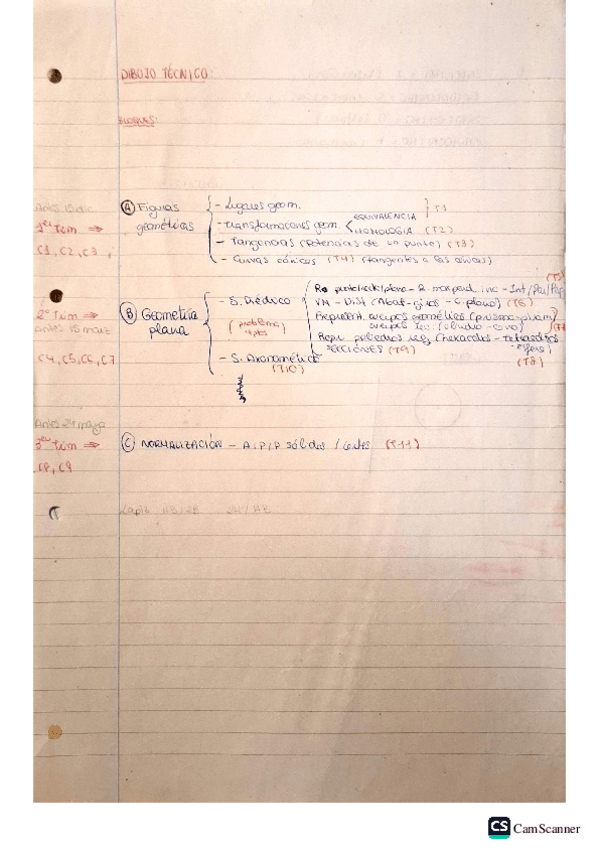 DIBUJO TÉCNICO:
BLOQUES:
Antes 15 dic
1er Trim ⇒
C1, C2, C3,
A Figuras geométricas
- Lugares geom. (T1)
- Transformaciones geom. < EQUIVALENCIA
HOMOLOGIA (T2)
- Tangencias (Potencias de un punto) (T3)
- Curvas cónicas (T4) (tangentes a las cónicas)
2º Trim ⇒
Antes 15 marz
C4, C5, C6, C7
B Geometria plana
- S. Diédrico
(problema 4pts)
Re punto/recta/plano - Int/Par/Perp (T5)
VM - Dist (Abat-giros - C. plano) (T6)
Represent. cuerpos geométricos (prisma-piram)
cuerpos rev. (cilindro - cono) (T7)
Repre. poliedros reg (hexaedros - tetraedros
SECCIONES (T9)
(T8)
- S. Axonométrico
(T10)
Antes 29 mayo
3er Trim ⇒
C8, C9
C NORMALIZACIÓN - A/P/P sólidos / cortes (T11)
Lapiz HB/2B
CS CamScanner